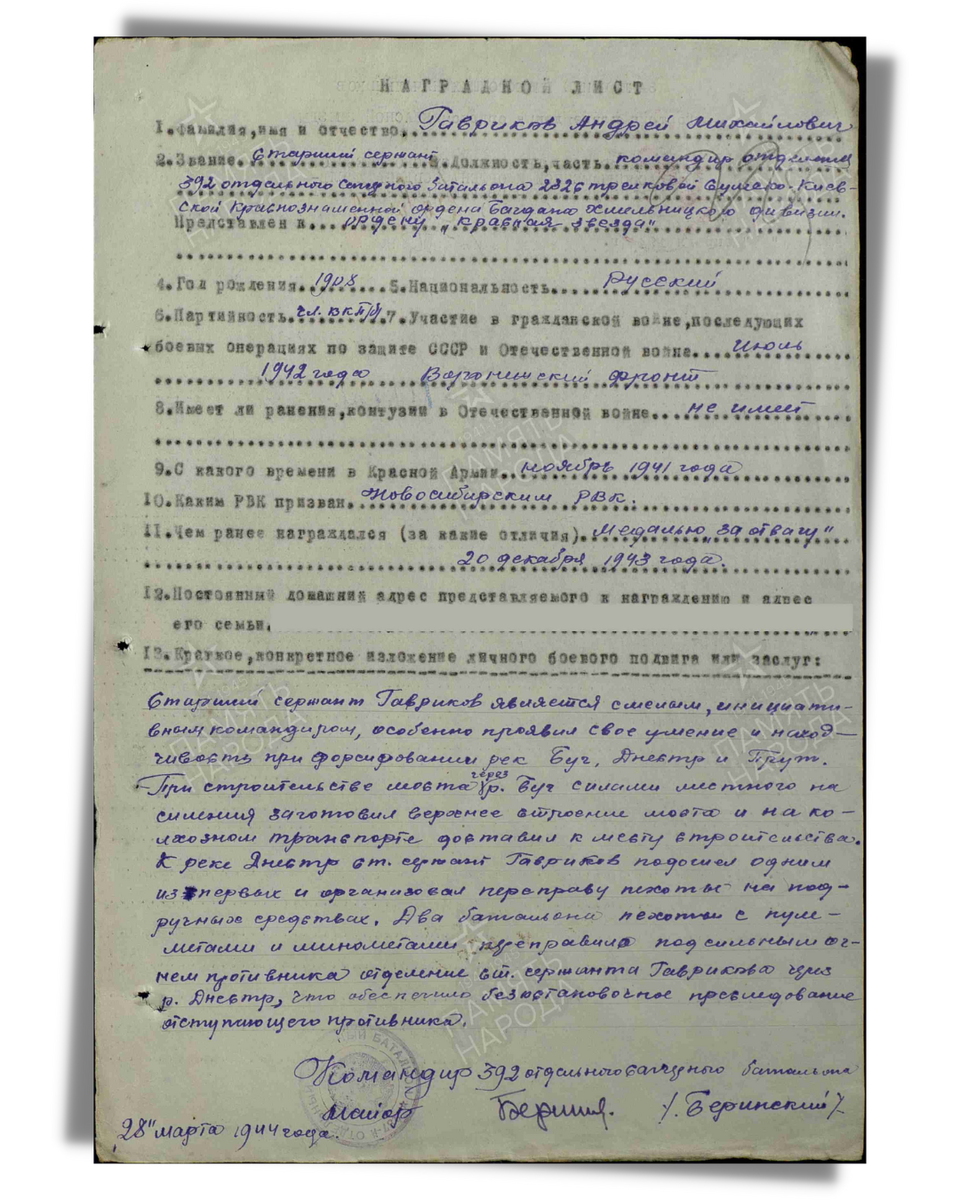 НАГРАДНОЙ ЛИСТ
1. Фамилия, имя и отчество Гавриков Андрей Михайлович
2. Звание Старший сержант 3. Должность, часть командир отделения
392 отдельного саперного батальона 232 стрелковой Сумско-Киев-
ской Краснознаменной ордена Богдана Хмельницкого дивизии.
Представлен к ордену "Красная звезда"
4. Год рождения 1908 5. Национальность Русский
6. Партийность чл. ВКП/б/ 7. Участие в гражданской войне, последующих
боевых операциях по защите СССР и Отечественной война Июль
1942 года Воронежский фронт
8. Имеет ли ранения, контузии в Отечественной войне не имеет
9. С какого времени в Красной Армии ноябрь 1941 года
10. Каким РВК призван Новосибирским РВК.
11. Чем ранее награждался (за какие отличия) Медалью "За отвагу"
20 декабря 1943 года.
12. Постоянный домашний адрес представляемого к награждению и адрес
его семьи
13. Краткое, конкретное изложение личного боевого подвига или заслуг:
Старший сержант Гавриков является смелым, инициати-
вным командиром, особенно проявил свое умение и наход-
чивость при форсировании рек Буг, Днестр и Прут.
При строительстве моста через р. Буг силами местного на
селения заготовил верхнее строение моста и на ко-
лхозном транспорте доставил к месту строительства.
К реке Днестр ст. сержант Гавриков подошел одним
из первых и организовал переправу пехоты на под-
ручных средствах. Два батальона пехоты с пуле-
метами и минометами переправило под сильным ог-
нем противника отделение ст. сержанта Гаврикова через
р. Днестр, что обеспечило безостановочное преследование
отступающего противника.
Командир 392 отдельного саперного батальона
майор /Беринский/
28" марта 1944 года.
ПАМЯТЬ НАРОДА